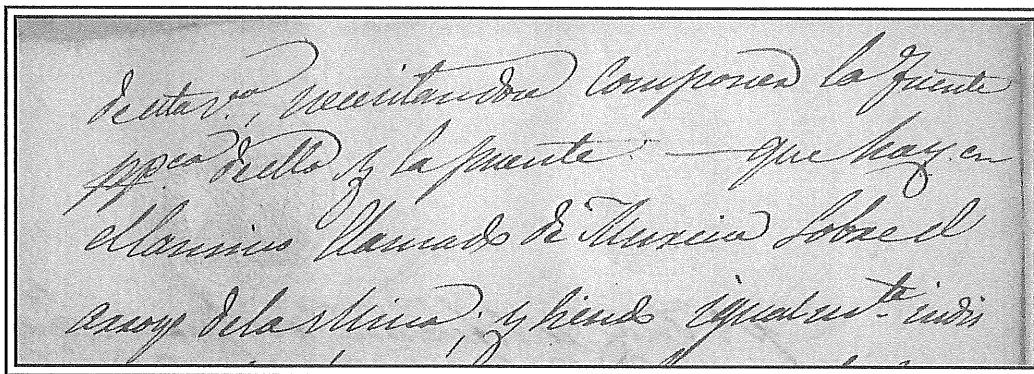 de esta v.ª, necesitandose componer la fuente
pp.ca de ella y la puente — que hay en
el camino llamado de Murcia sobre el
arroyo de la Mina; y siendo igualm.te indis